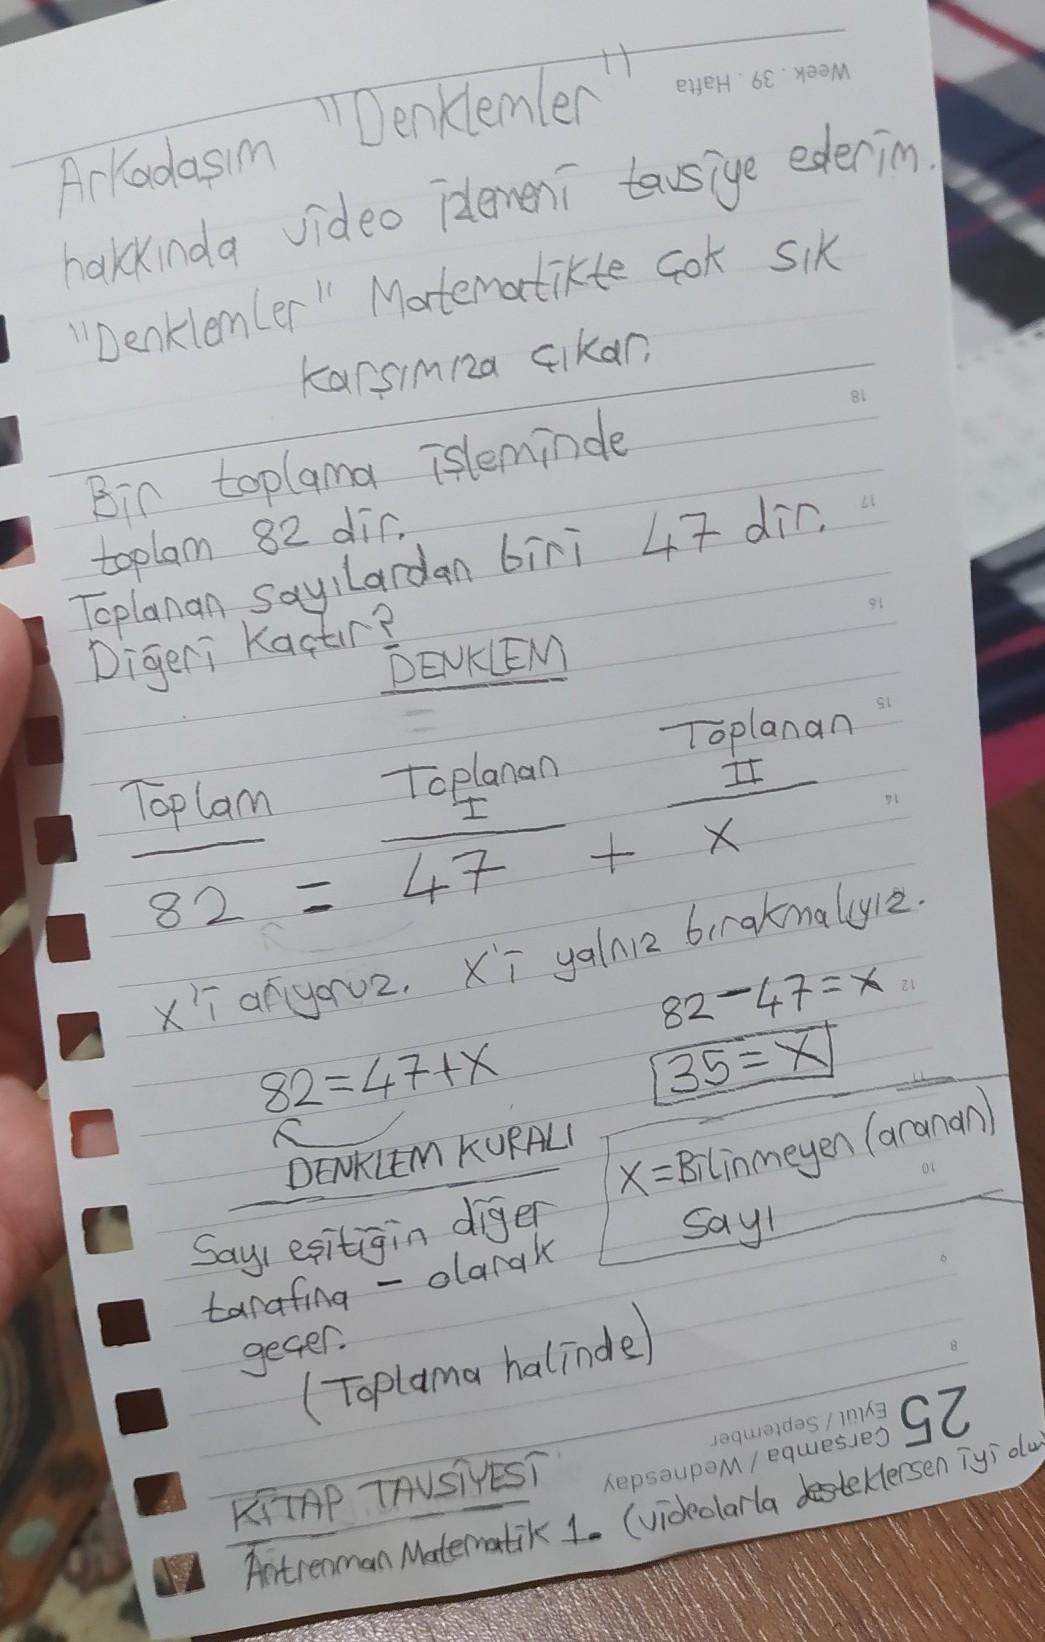 Week . 39 . Hafta
Arkadaşım "Denklemler"
hakkında video izlemeni tavsiye ederim.
"Denklemler" Matematikte çok sık
karşımıza çıkar.
18
Bir toplama işleminde
toplam 82 dir.
17
Toplanan sayılardan biri 47 dir.
16
Diğeri kaçtır?
DENKLEM
15
Toplam Toplanan I Toplanan II
14
82 = 47 + x
x'i arıyoruz. x'i yalnız bırakmalıyız.
12
82=47+x 82-47=x
35=x
11
DENKLEM KURALI
x=Bilinmeyen (aranan)
Sayı
10
Sayı eşitiğin diğer
tarafına - olarak
geçer.
9
(Toplama halinde)
8
25 Eylül / September
Çarşamba / Wednesday
KİTAP TAVSİYESİ
Antrenman Matematik 1. (videolarla desteklersen iyi olur